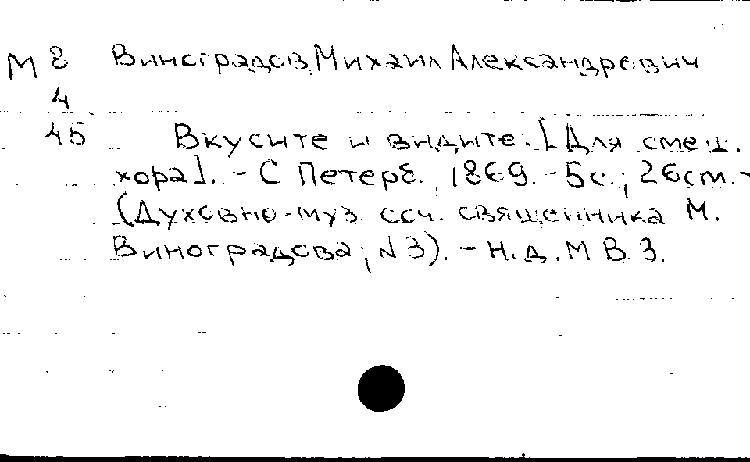 М 8 Виноградов, Михаил Александрович
4
45 Вкусите и видите. [Для смеш.
хора]. - С Петерб., 1869. - 5с.; 26см. -
(Духовно-муз. соч. священника М.
Виноградова; №3). - Н.д. М В 3.